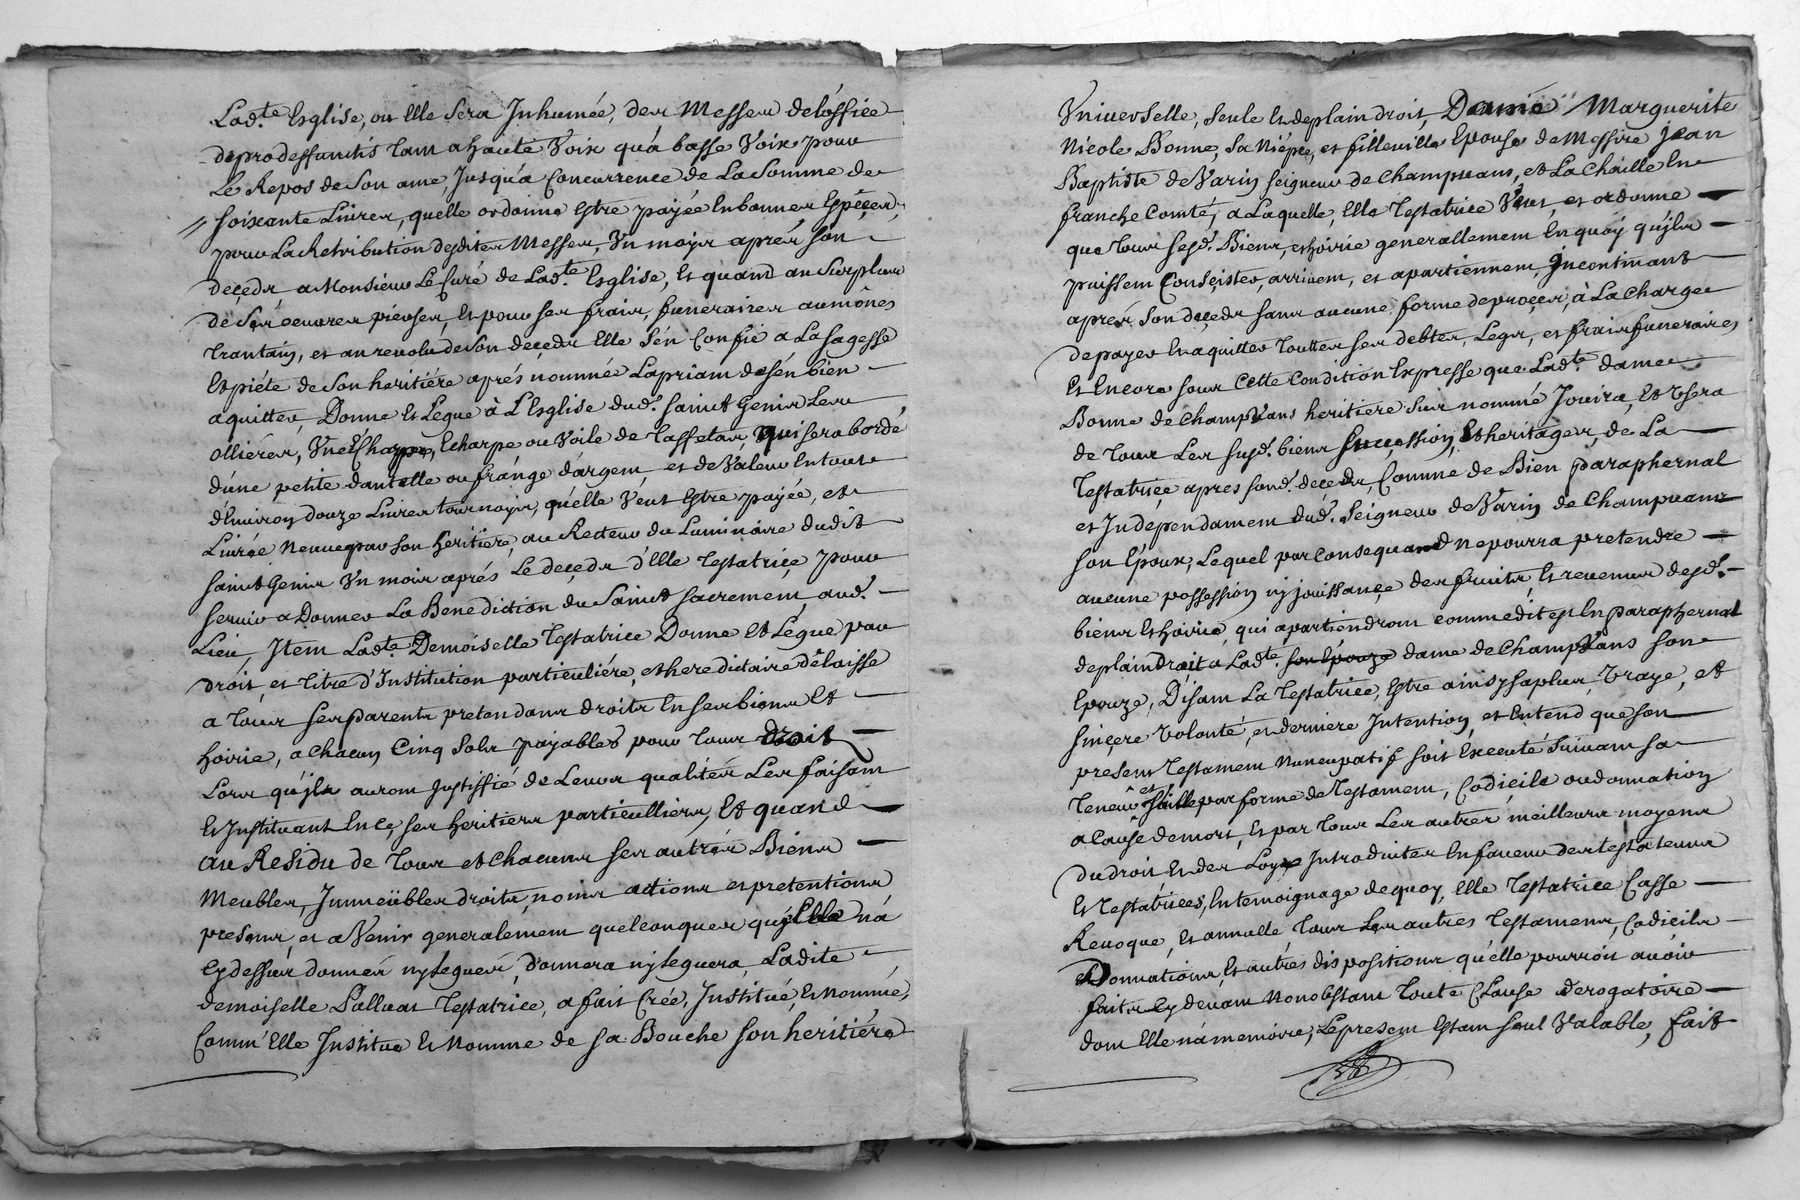 Lad.te Esglise, ou Elle sera Inhumée, des Messes de l'office
de pro deffunctis tant a haute Voix qu'à basse Voix pour
Le Repos de son ame, Jusqu'a Concurrence de La Somme de
soixante Livres, quelle ordonne Estre payée En bonnes Espèces,
pour La Retribution desdites Messes, Un moys après son
deçeds, a Monsieur Le Curé de Lad.te Esglise, Et quand au Surplus
de Ses œuvres pieuses, Et pour ses frais, funeraires aumônes
trantain, et au revolu de Son deçeds Elle s'én Confie a La sagesse
Et piéte de Son heritiére aprés nommée La priant de s'én bien
aquitter, Donne Et Legue à L'Esglise dud. saint Genis Les
ollières, Une Echarpe, Echarpe ou Voile de taffetas, qui sera bordé
d'une petite dantelle ou frânge d'argent, et de Valeur En tout
d'Environ douze Livres tournoys, qu'elle Veut Estre payée, et
Livrée neuve par son heritiere, au Recteur du Luminaire dudit
saint Genis Un mois aprés Le deçeds d'Elle testatriçe pour
servir a Donner La Benediction du Saint Sacrement, aud.
Lieu, Item Lad.te Demoiselle testatrice Donne Et Legue par
droit, et titre d'Institution particuliére, et heredictaire délaisse
a tous ses parents pretendans droits En ses biens Et
hoirie, a chacun Cinq sols payables pour tous droit
Lors qu'jls auront Justiffié de Leurs qualités Les faisant
Et Instituant En ce, ses heritiers particulliers, Et quand
au Residu de tous et chacuns ses autres Biens
Meubles, Immeubles droits, noms actions et pretentions
presens, et a Venir generalement quelconques qu'Elle n'á
cy dessus donnés ny legués, donnera ny leguera, Ladite
demoiselle Palluat testatrice, a fait Creé, Institué, Et Nommé,
Comm'Elle Institue Et Nomme de sa Bouche son heritiére
Universelle, seule Et de plain droit, Dame Marguerite
Nicole Bonne, sa Niépce, et filleuille Epouse de Messire Jean
Baptiste de Varin seigneur de Champvans, et La Chaille En
franche Comté, a Laquelle, Elle testatrice Veut, et ordonne
que tous sesd. Biens, et hoirie generallement En quoy qu'jls
puissent Consister, arrivent, et apartiennent, jncontinant
aprés son deçeds sans aucune forme de proçes, à La charge
de payer En aquitter touttes ses debtes, Legs, et frais funeraires
Et Encore sous Cette Condition Expresse que Lad.te dame
Bonne de Champvans heritiere sus nommé Jouira, Et Usera
de tous Les susd. biens Succession, Et heritages, de La
testatriçe apres sond. deceds, Comme de Bien paraphernal
et Independament dud. Seigneur de Varin de Champvans
son Epoux, Lequel par Consequand ne pourra pretendre
aucune possession ny jouissançe des fruits, Et revenus desd.
biens Et hoirie, qui apartiendront comme dit est En paraphernal
de plain droit à Lad.te son Epouze dame de Champvans son
Epouze, Disant La testatrice, Estre ainsy sa plus vraye, et
sinçere Volonté, et derniere Intention, et Entend que son
present testament Nuncupatif soit Executé suivant sa
teneur et vaille par forme de testament, Codicile ou donnation
a Cause de mort, Et par tous Les autres meilleurs moyens
du droit Et des Loyx Introduites En faveur des testateurs
Et testatrices, En temoignage de quoy, Elle testatrice Casse
Revoque, Et annulle tous Les autres testamens, Codicils
Donnations Et autres dispositions qu'elle pourroit avoir
faits Cy devant Nonobstant toute Clause derogatoire
dont Elle n'á memoire, Le present Estant seul Valable, fait